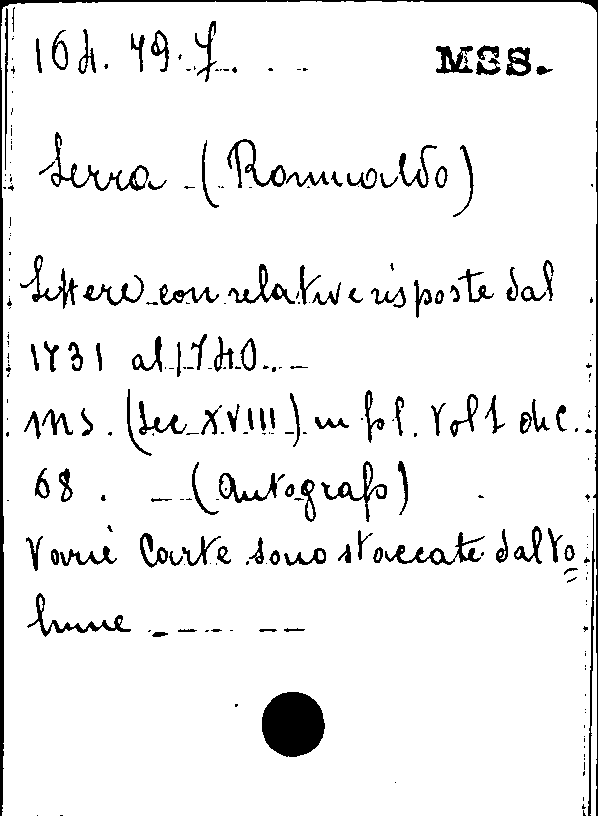 164. 79. 7. MSS.
Serra (Romualdo)
Lettere con relative risposte dal
1731 al 1740.
ms. (Sec XVIII) in fol. Vol 1 di c.
68. (Autografo)
Varie Carte sono staccate dal vo=
lume